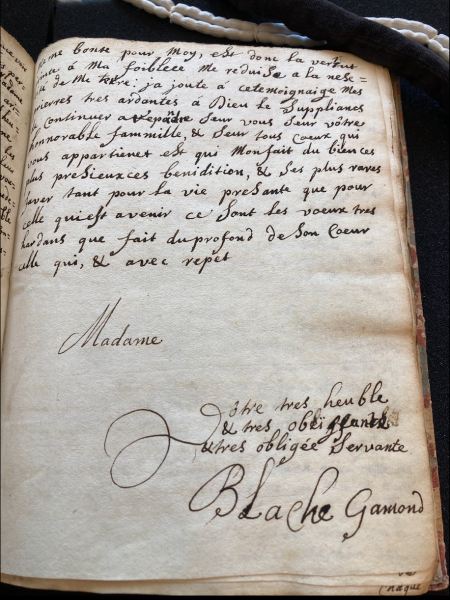 me bonté pour Moy, est donc la vertut
a Ma foiblece Me reduise a la nese=
de Me tere: ja joute à cetemoignaige Mes
prierres tres ardantes à Dieu le Supplianes
de Continuer a repandre Seur vous Seur vôtre
honnorable fammille, & Seur tous Coeux qui
vous appartienet est qui Monfait du bien ces
plus presieuxces benidition, & Ses plus rares
faver tant pour la vie presante que pour
celle quiest avenir ce Sont les voeux tres
hardans que fait du profond de Son Coeur
celle qui, & avec repêt
Madame
Vôtre tres heuble
& tres obeissante
& tres obligée Servante
BLache Gamond
Chaque